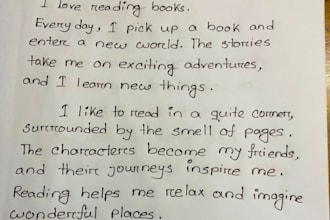 I love reading books.
Every day, I pick up a book and
enter a new world. The stories
take me on exciting adventures,
and I learn new things.
I like to read in a quite corner,
surrounded by the smell of pages.
The characters become my friends,
and their journeys inspire me.
Reading helps me relax and imagine
wonderful places.